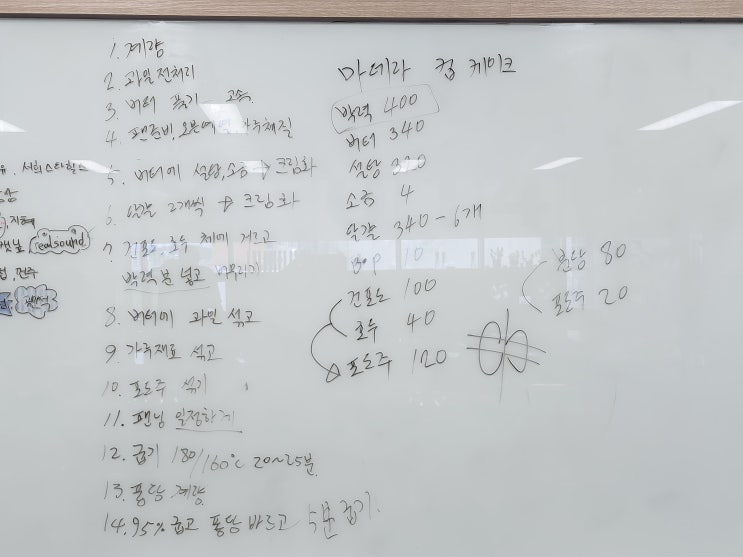 1. 계량
2. 과일전처리
3. 버터 풀기 고속
4. 팬준비, 오븐예열 가루체질
5. 버터에 설탕, 소금 → 크림화
6. 계란 2개씩 → 크림화
7. 건포도, 호두 체에 거르고
박력분 넣고 버무리기
8. 버터에 과일 섞고
9. 가루재료 섞고
10. 포도주 섞기
11. 팬닝 일정하게
12. 굽기 180/160℃ 20~25분.
13. 퐁당 계량
14. 95% 굽고 퐁당 바르고 5분 굽기.
마데라 컵 케이크
박력 400
버터 340
설탕 320
소금 4
계란 340 - 6개
B.P 10
건포도 100
호두 40
포도주 120
분당 80
포도주 20
realsound